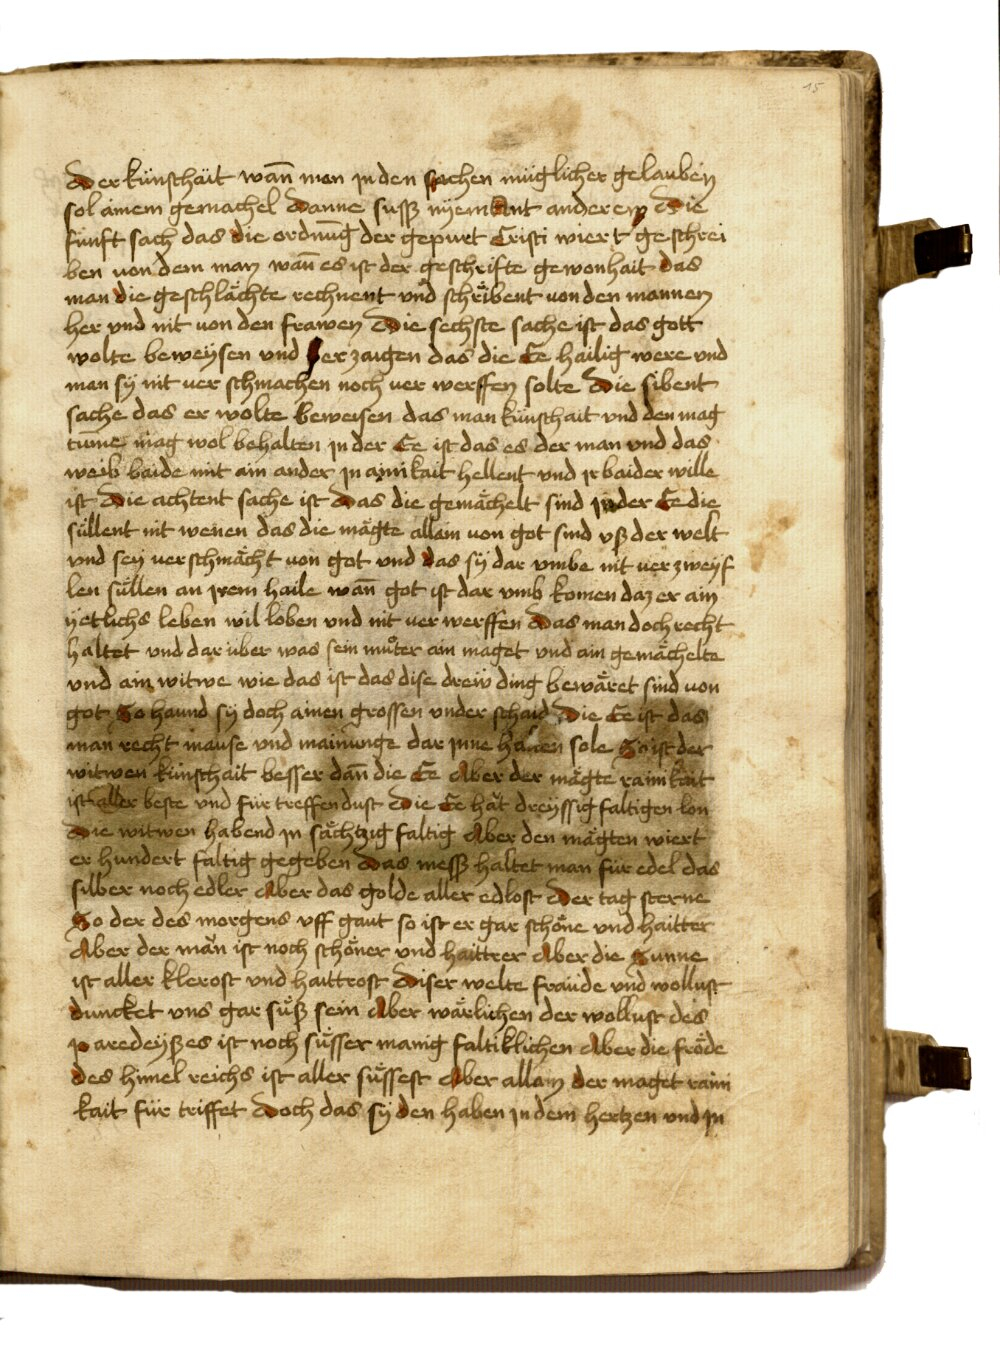 15
Der künschäit wañ man in den sachen müglicher gelauben
sol ainem gemachel danne suſſz nÿemant anderem Die
fúnft sach das die ordnūg der gepurt Cristi wiert geschrei
ben von dem man wañ es ist der geschrifte gewonhait das
man die geschlächte rechnent vnd schribent von den mannen
her vnd nit von den frawen Die sechste sache ist das gott
wolte beweÿsen vnd erzaigen das die Ee hailig were vnd
man sÿ nit ver schmachen noch ver werffen solte Die sibent
sache das er wolte beweisen das man künschait vnd den mag
tūme mag wol behalten in der Ee ist das es der man vnd das
weib baide mit ain ander in ainikait hellent vnd ir baider wille
ist Die achtent sache ist Das die gemächelt sind in der Ee die
süllent nit wenen das die mägte allain von got sind vß der welt
vnd seÿ verschmächt von got vnd das sÿ dar vmbe nit ver zweÿf
len süllen an irem haile wañ got ist dar vmb komen daz er ain
ÿetlichs leben wil loben vnd nit ver werffen Das man doch recht
haltet vnd dar über was sein muͦter ain maget vnd ain gemächelte
vnd ain witwe wie das ist das dise dreẅ ding bewäret sind von
got So haund sÿ doch ainen grossen vnder schaid Die Ee ist das
man recht mause vnd mainunge dar inne haben sole So ist der
witwen künschait besser dañ die Ee Aber der mägte rainikait
ist aller beste vnd für treffendust Die Ee hät dreÿssig faltigen lon
Die witwen habend in sächtzig faltig Aber den mägten wiert
er hundert faltig gegeben Das mesſz haltet man für edel das
silber noch edler Aber das golde aller edlost Der tag sterne
So der des morgens vff gaut so ist er gar schöne vnd haitter
Aber der män ist noch schöner vnd haittrer Aber die Sunne
ist aller klerost vnd haittrost Diser welte fräude vnd wollust
duncket vns gar süß sein Aber wärlichen der wollust des
paredeÿßes ist noch süsser manig faltiklichen Aber die fröde
des himel reichs ist aller süssest Aber allain der maget raini
kait für triffet Doch das sÿ den haben in dem hertzen vnd in